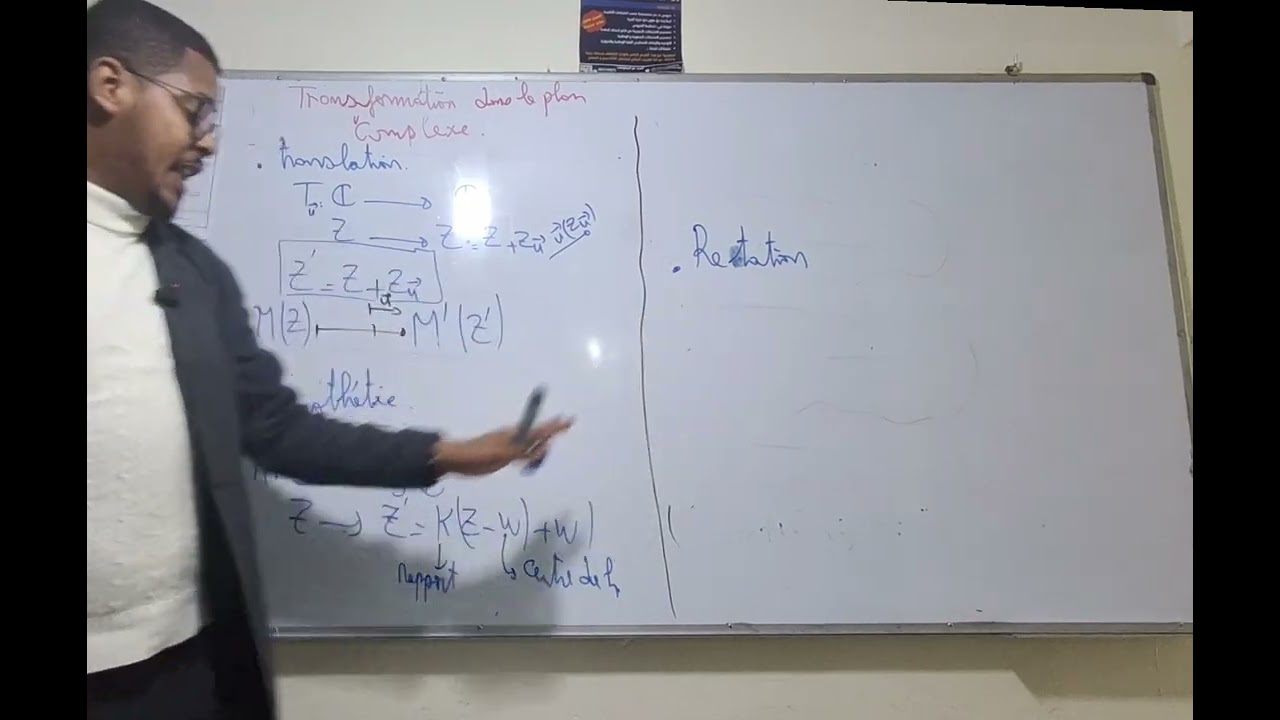 Transformation dans le plan
Complexe.
. translation.
T_u⃗: ℂ ⟶ ℂ
Z ⟶ Z' = Z + Z_u⃗ u⃗(Z_u⃗)
Z' = Z + Z_u⃗
u⃗
M(Z) M'(Z')
Z → Z' = K(Z - W) + W)
rapport centre de h
. Rotation